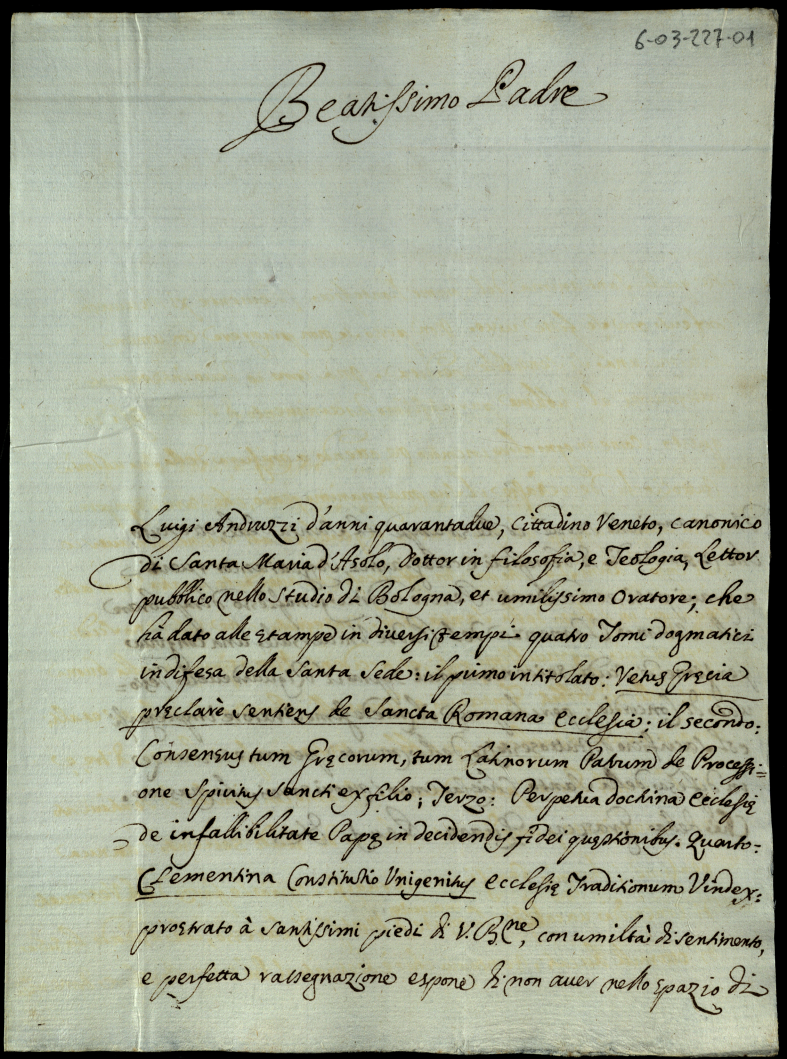 6-03-227-01
Beatissimo Padre
Luigi Andruzzi d'anni quarantadue, Cittadino Veneto, canonico
di Santa Maria d'Asolo, Dottor in filosofia, e Teologia, Lettor
pubblico nello Studio di Bologna, et umilissimo Oratore; che
hà dato alle stampe in diversi tempi quatro Tomi dogmatici
in difesa della Santa Sede: il primo intitolato: Vetus Gręcia
pręclarè sentiens de Sancta Romana Ecclesia; il secondo:
Consensus tum Gręcorum, tum Latinorum Patrum de Processi=
one Spiritus Sancti ex filio; Terzo: Perpetua doctrina Ecclesię
de infallibilitate Papę in decidendis fidei quęstionibus. Quarto=
Clementina Constitutio Unigenitus Ecclesię Traditionum Vindex=
prostrato à Santissimi piedi di V. Bne, con umiltà di sentimento,
e perfetta rassegnazione espone di non aver nello spazio di